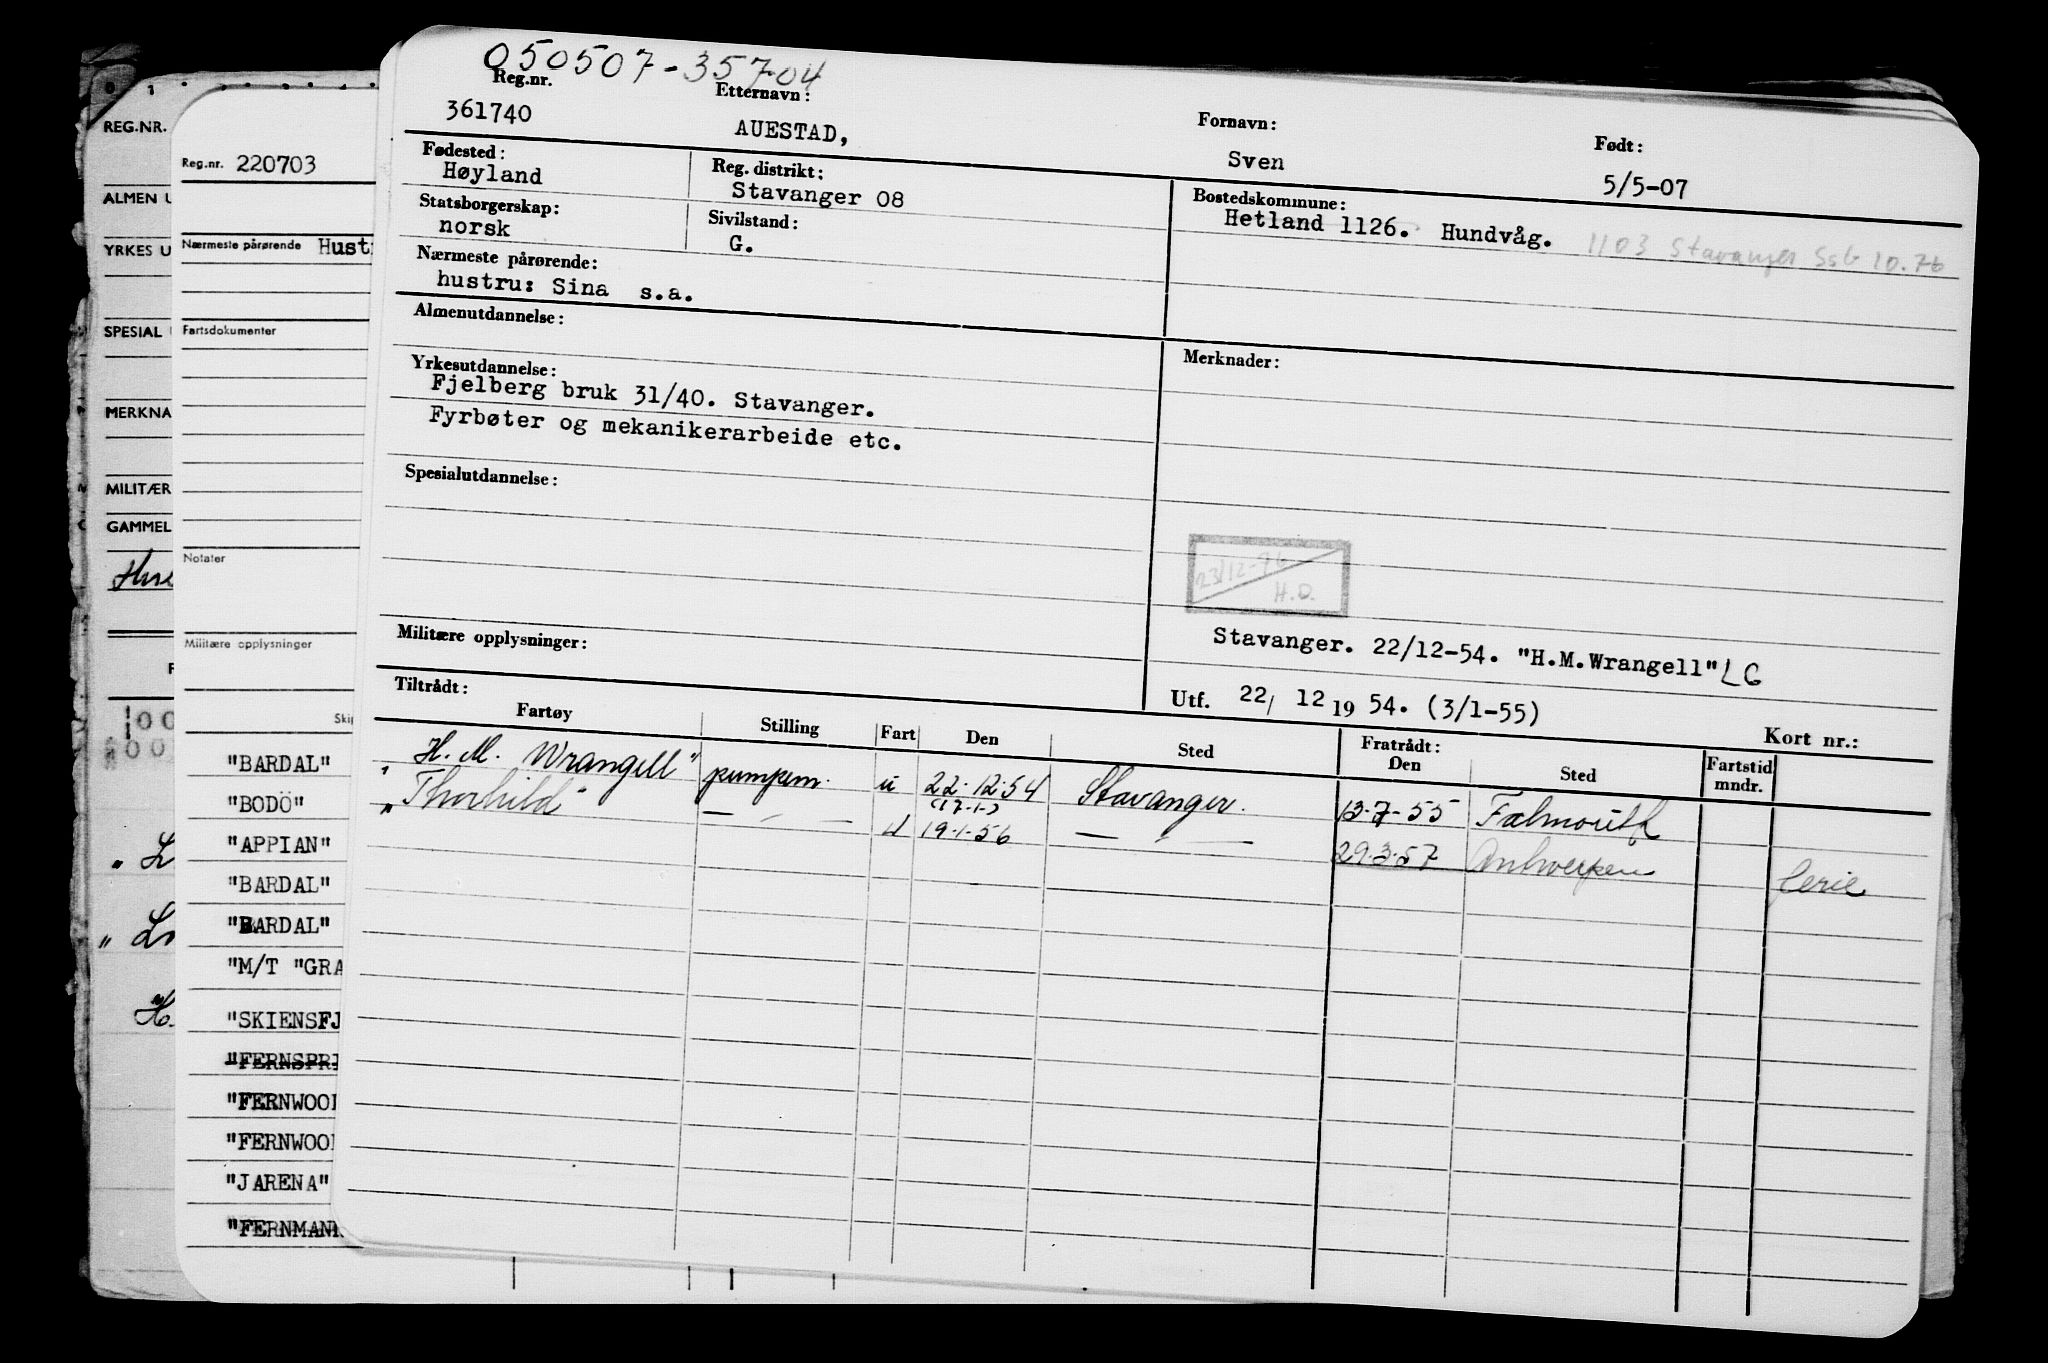 050507-35704
Reg.nr. Etternavn: Fornavn: Født:
361740 AUESTAD, Sven 5/5-07
Fødested: Reg. distrikt: Bostedskommune:
Høyland Stavanger 08 Hetland 1126. Hundvåg. 1103 Stavanger SsB 10.76
Statsborgerskap: Sivilstand:
norsk G.
Nærmeste pårørende:
hustru: Sina s.a.
Almenutdannelse:
Yrkesutdannelse: Merknader:
Fjelberg bruk 31/40. Stavanger.
Fyrbøter og mekanikerarbeide etc.
Spesialutdannelse:
23/12-76
H.O.
Militære opplysninger:
Stavanger. 22/12-54. "H.M.Wrangell" LG
Utf. 22/ 12 19 54. (3/1-55)
Tiltrådt: Fratrådt: Kort nr.:
Fartøy Stilling Fart Den Sted Den Sted Fartstid mndr.
"H. M. Wrangell" pumpem. u 22.12.54 Stavanger. 13-7-55 Falmouth
(17.1.)
"Thorhild" — " — u 19.1.56 — " — 29.3.57 Antwerpen ferie
REG.NR.
ALMEN U
YRKES U
SPESIAL
MERKNA
MILITÆR
GAMMEL
Reg.nr. 220703
Nærmeste pårørende Hust
Fartsdokumenter
Notater
Militære opplysninger
Skip
"BARDAL"
"BODÖ"
"APPIAN"
"BARDAL"
"BARDAL"
"M/T "GRA
"SKIENSFJ
"FERNSPRI
"FERNWOO
"FERNWOO
"JARENA"
"FERNMAN